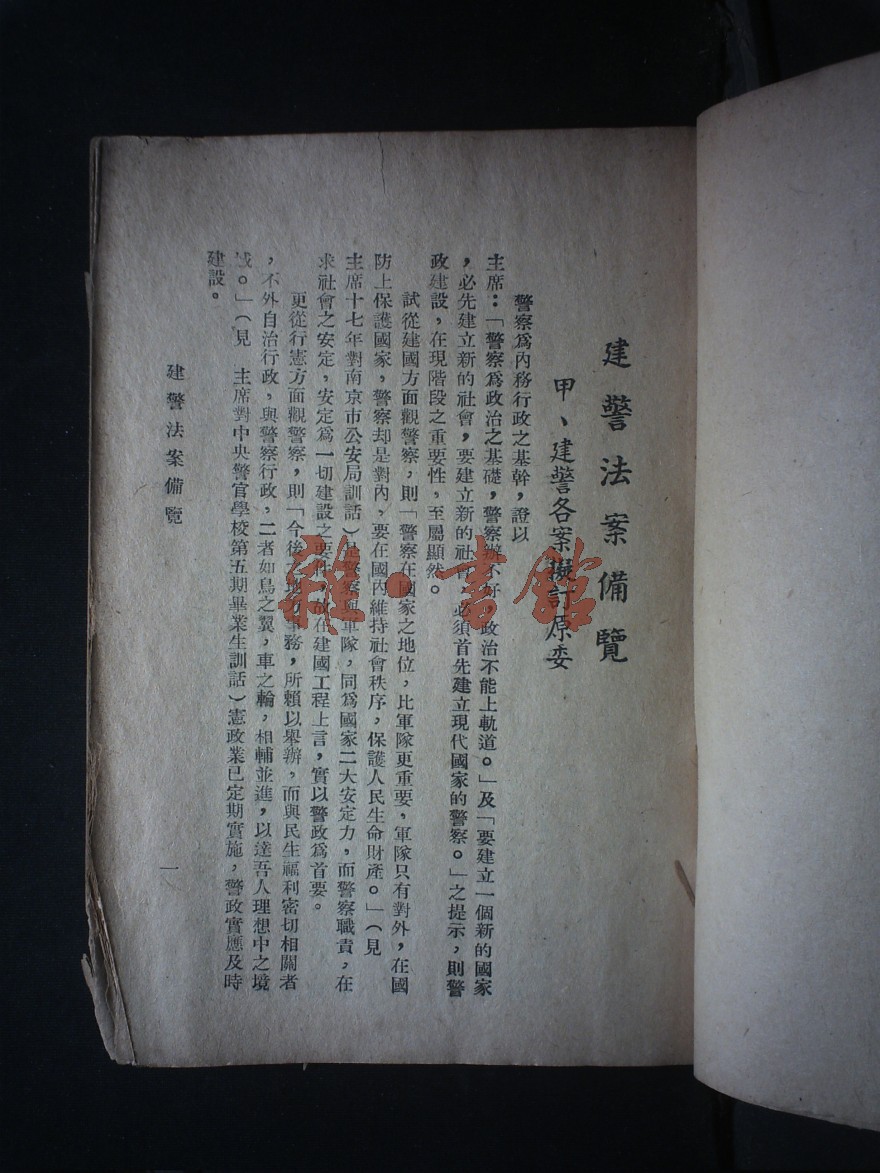 建警法案備覽
甲、建警各案擬訂原委
警察爲內務行政之基幹，證以
主席：「警察爲政治之基礎，警察辦不好，政治不能上軌道。」及「要建立一個新的國家
，必先建立新的社會，要建立新的社會，必須首先建立現代國家的警察。」之提示，則警
政建設，在現階段之重要性，至屬顯然。
試從建國方面觀警察，則「警察在國家之地位，比軍隊更重要，軍隊只有對外，在國
防上保護國家，警察却是對內，要在國內維持社會秩序，保護人民生命財產。」（見
主席十七年對南京市公安局訓話）是警察與軍隊，同爲國家二大安定力，而警察職責，在
求社會之安定，安定爲一切建設之要件，故在建國工程上言，實以警政爲首要。
更從行憲方面觀警察，則「今後之地方事務，所賴以舉辦，而與民生福利密切相關者
，不外自治行政，與警察行政，二者如鳥之翼，車之輪，相輔並進，以達吾人理想中之境
域。」（見　主席對中央警官學校第五期畢業生訓話）憲政業已定期實施，警政實應及時
建設。
建警法案備覽
一
雜·書館